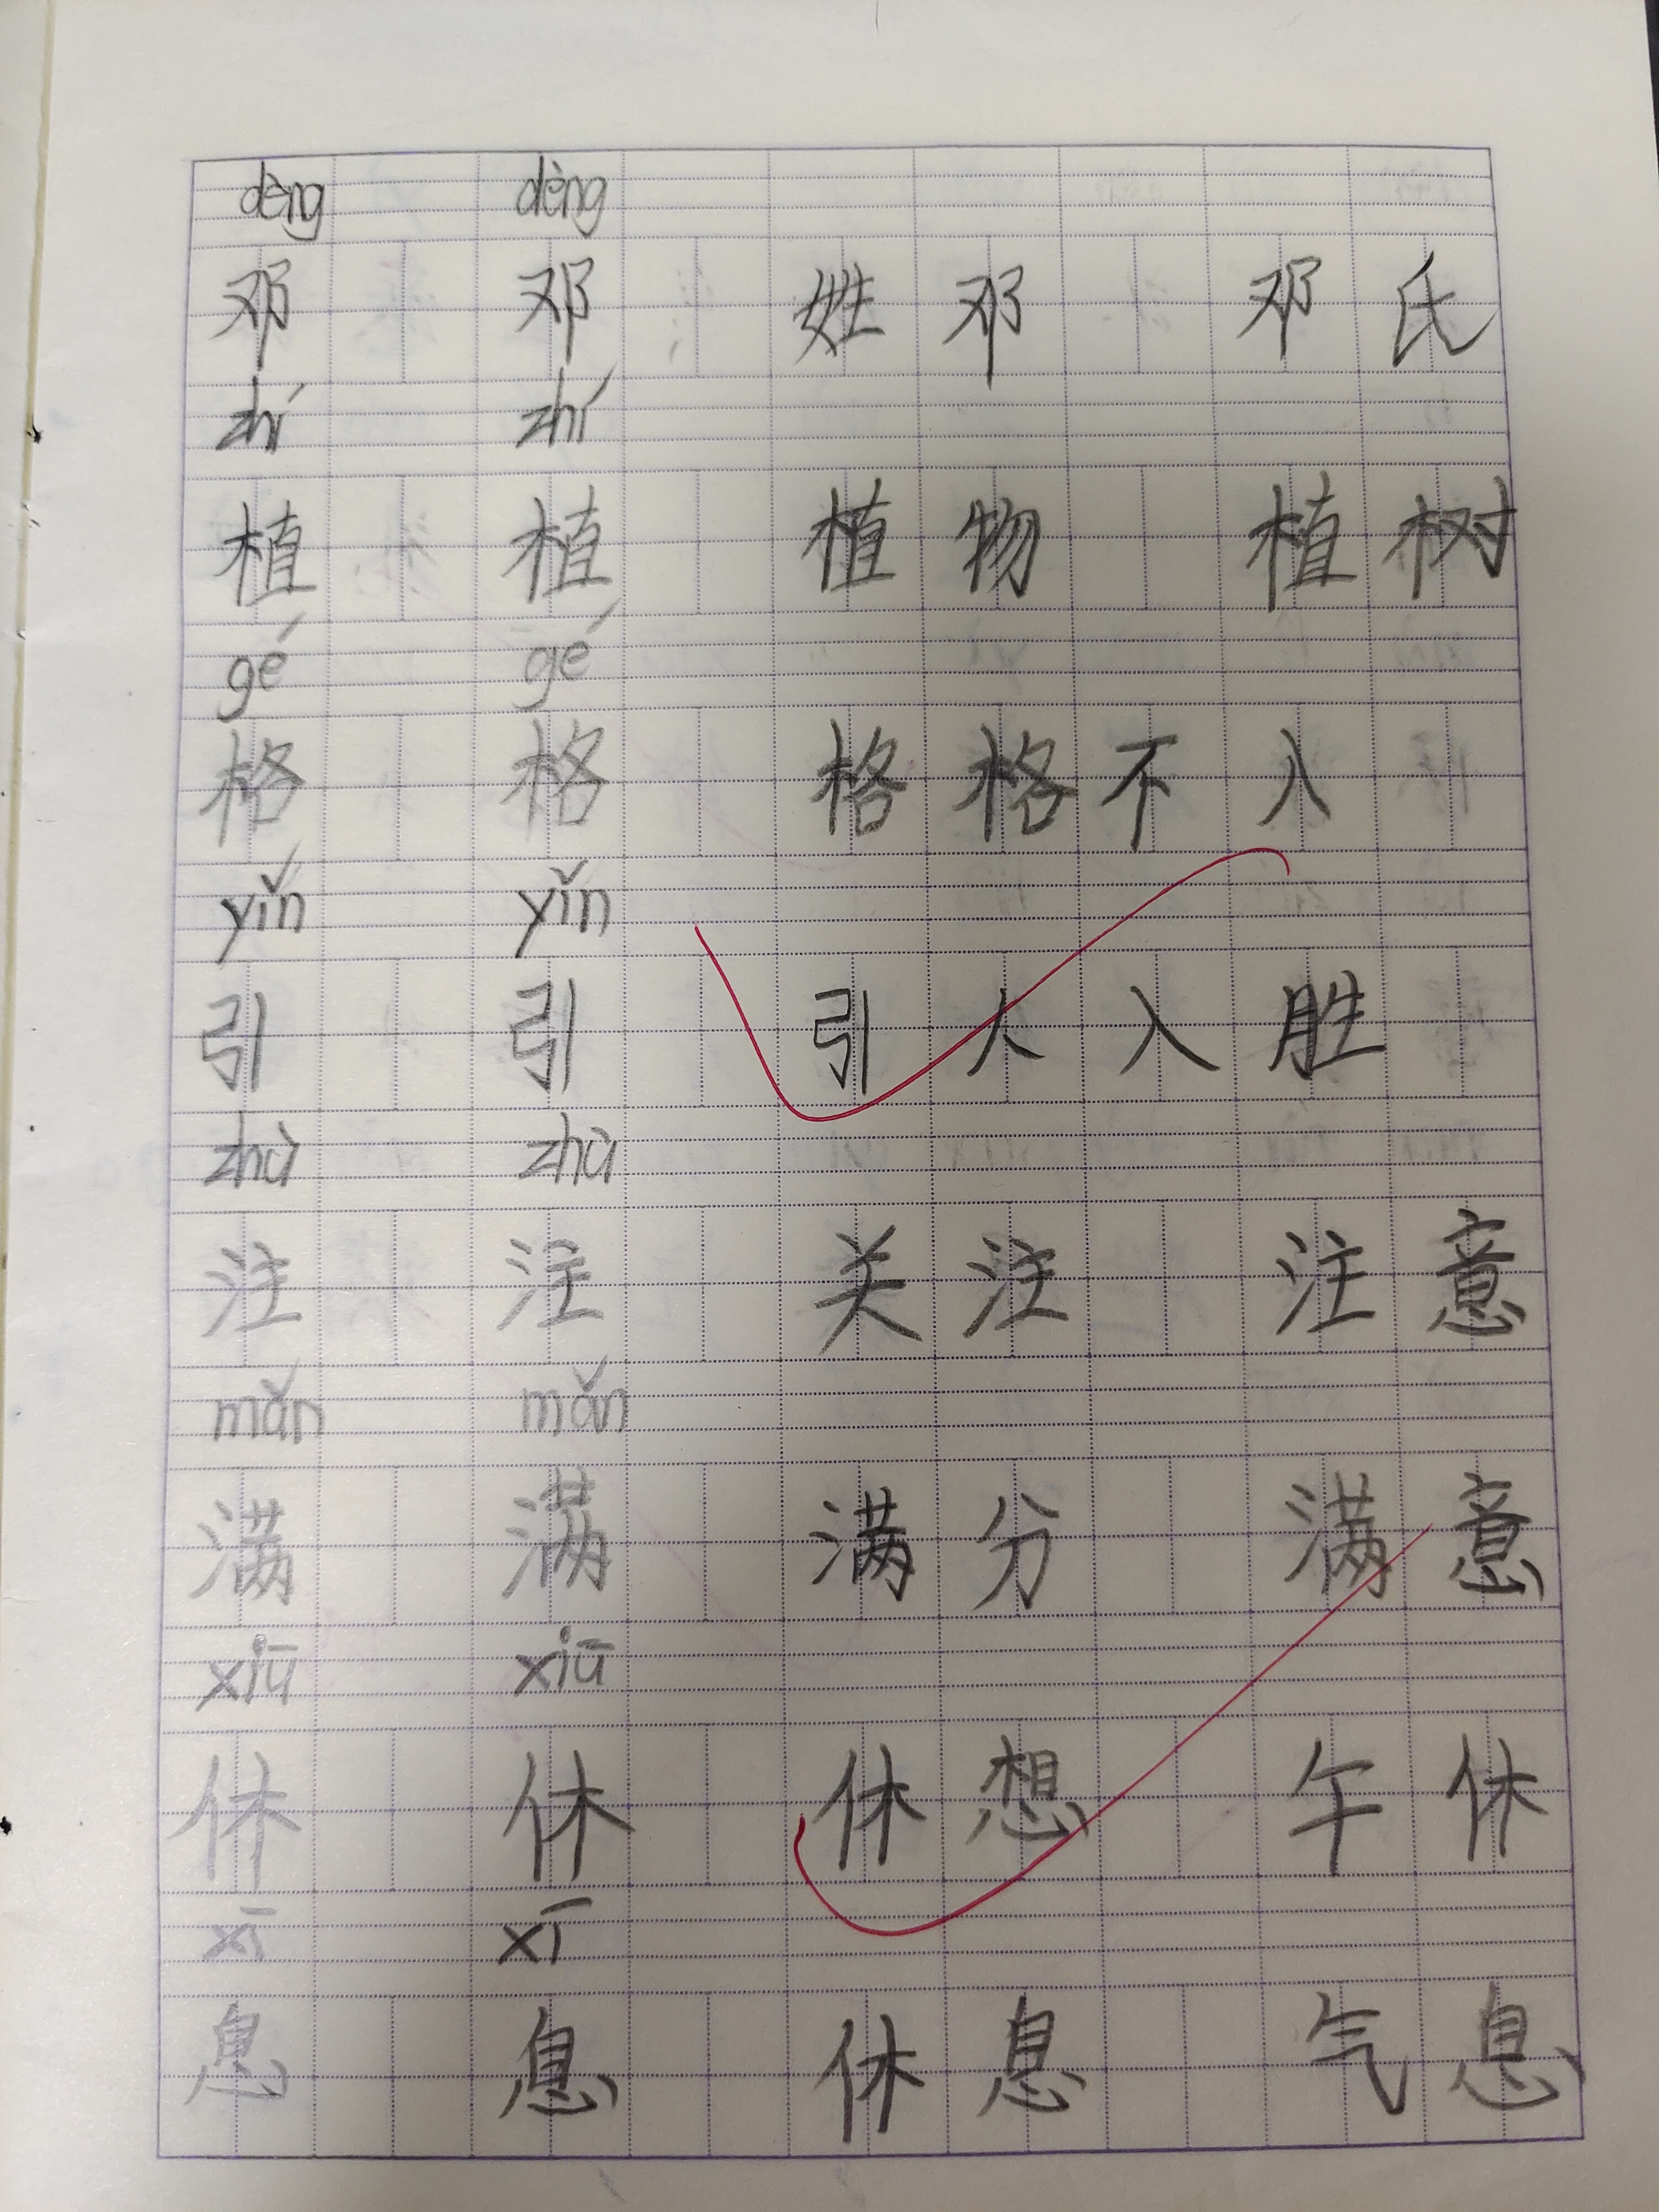 dèng dèng
邓 邓 姓邓 邓氏
zhí zhí
植 植 植物 植树
gé gé
格 格 格格不入
yǐn yǐn
引 引 引人入胜
zhù zhù
注 注 关注 注意
mǎn mǎn
满 满 满分 满意
xiū xiū
休 休 休想 午休
xī xī
息 息 休息 气息